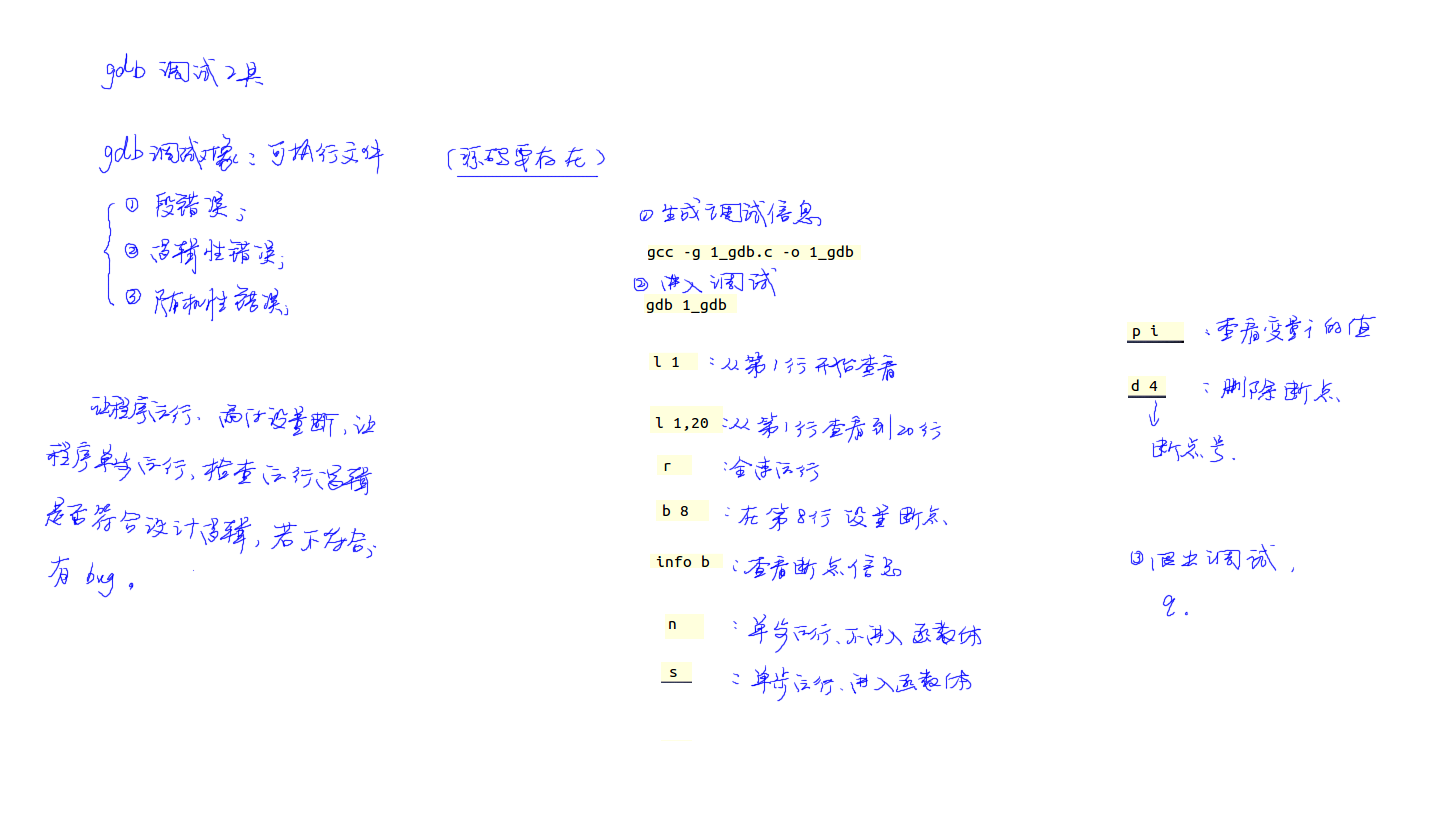 gdb 调试工具
gdb 调试对象：可执行文件 （源码要存在）
① 段错误；
② 逻辑性错误；
③ 随机性错误；
让程序运行、而后设置断，让
程序单步运行、检查运行逻辑
是否符合设计逻辑，若不符合；
有 bug。
① 生成调试信息
gcc -g 1_gdb.c -o 1_gdb
② 进入调试
gdb 1_gdb
l 1 ：从第1行开始查看
l 1,20 ：从第1行查看到20行
r ：全速运行
b 8 ：在第8行设置断点、
info b ：查看断点信息
n ：单步运行、不进入函数体
s ：单步运行、进入函数体
p i ：查看变量i的值
d 4 ：删除断点、
断点号．
③ 退出调试，
q．